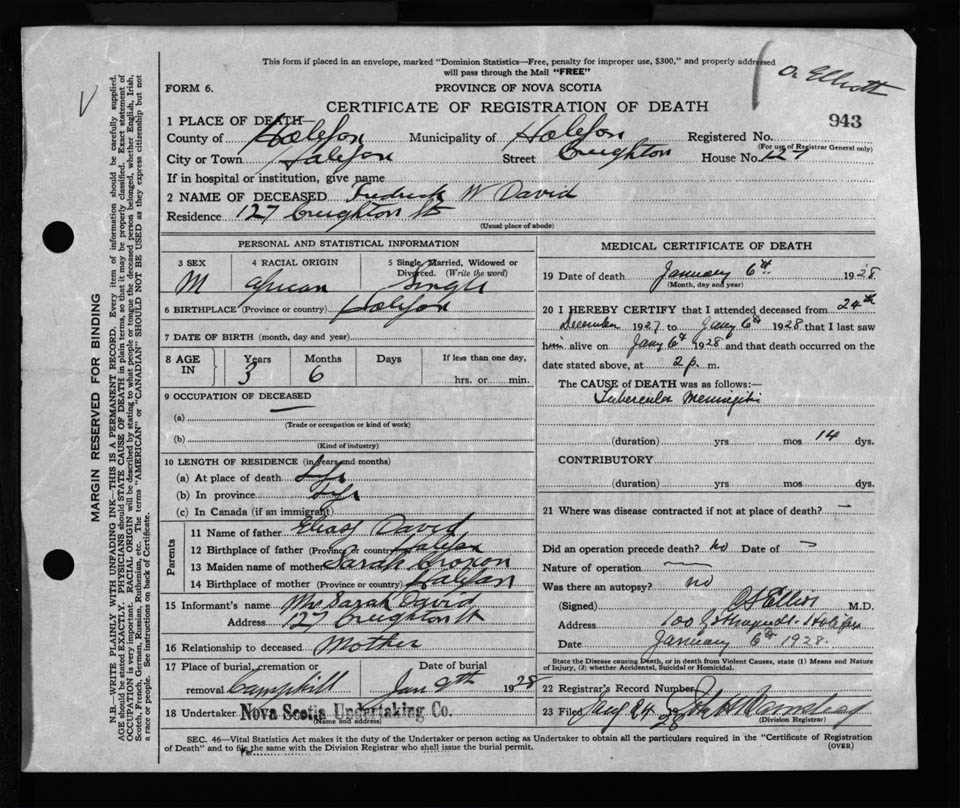 This form if placed in an envelope, marked "Dominion Statistics—Free, penalty for improper use, $300," and properly addressed
will pass through the Mail "FREE"
FORM 6.
PROVINCE OF NOVA SCOTIA
Elliott
CERTIFICATE OF REGISTRATION OF DEATH
943
1 PLACE OF DEATH
County of Halifax Municipality of Halifax Registered No.
(For use of Registrar General only)
City or Town Halifax Street Creighton House No. 127
If in hospital or institution, give name
2 NAME OF DECEASED Fredrick W David
Residence 127 Creighton St
(Usual place of abode)
PERSONAL AND STATISTICAL INFORMATION
3 SEX 4 RACIAL ORIGIN 5 Single, Married, Widowed or Divorced. (Write the word)
M African Single
6 BIRTHPLACE (Province or country) Halifax
7 DATE OF BIRTH (month, day and year)
8 AGE IN Years Months Days If less than one day,
3 6 hrs. or min.
9 OCCUPATION OF DECEASED
(a)
(Trade or occupation or kind of work)
(b)
(Kind of industry)
10 LENGTH OF RESIDENCE (in years and months)
(a) At place of death Life
(b) In province Life
(c) In Canada (if an immigrant)
Parents
11 Name of father Elias David
12 Birthplace of father (Province or country) Halifax
13 Maiden name of mother Sarah
14 Birthplace of mother (Province or country) Halifax
15 Informant's name Mrs Sarah David
Address 127 Creighton St
16 Relationship to deceased Mother
17 Place of burial, cremation or Date of burial
removal Camphill Jan 9th 1928
18 Undertaker Nova Scotia Undertaking Co.
(Name and address)
MEDICAL CERTIFICATE OF DEATH
19 Date of death January 6th 1928
(Month, day and year)
20 I HEREBY CERTIFY that I attended deceased from 24th
December 1927 to Jany 6th 1928 that I last saw
him alive on Jany 6th 1928 and that death occurred on the
date stated above, at 2 p. m.
The CAUSE of DEATH was as follows:—
Tubercular Meningitis
(duration) yrs mos 14 dys.
CONTRIBUTORY
(duration) yrs mos dys.
21 Where was disease contracted if not at place of death? —
Did an operation precede death? no Date of —
Nature of operation —
Was there an autopsy? no
(Signed) Elliott M.D.
Address 100 Halifax
Date January 6th 1928.
State the Disease causing Death, or in death from Violent Causes, state (1) Means and Nature
of Injury, (2) whether Accidental, Suicidal or Homicidal.
22 Registrar's Record Number
23 Filed Jany 24 1928
(Division Registrar)
SEC. 46—Vital Statistics Act makes it the duty of the Undertaker or person acting as Undertaker to obtain all the particulars required in the "Certificate of Registration
of Death" and to file the same with the Division Registrar who shall issue the burial permit.
(OVER)
Per
MARGIN RESERVED FOR BINDING
N.B.—WRITE PLAINLY WITH UNFADING INK—THIS IS A PERMANENT RECORD. Every item of information should be carefully supplied.
AGE should be stated EXACTLY. PHYSICIANS should STATE CAUSE OF DEATH in plain terms, so that it may be properly classified. Exact statement of
OCCUPATION is very important. RACIAL ORIGIN will be described by stating to what people or tongue the deceased person belonged, whether English, Irish,
Scotch, French, German, Russian, Ruthenian, etc. The terms "AMERICAN" or "CANADIAN" SHOULD NOT BE USED as they express citizenship but not
a race or people. See instructions on back of Certificate.